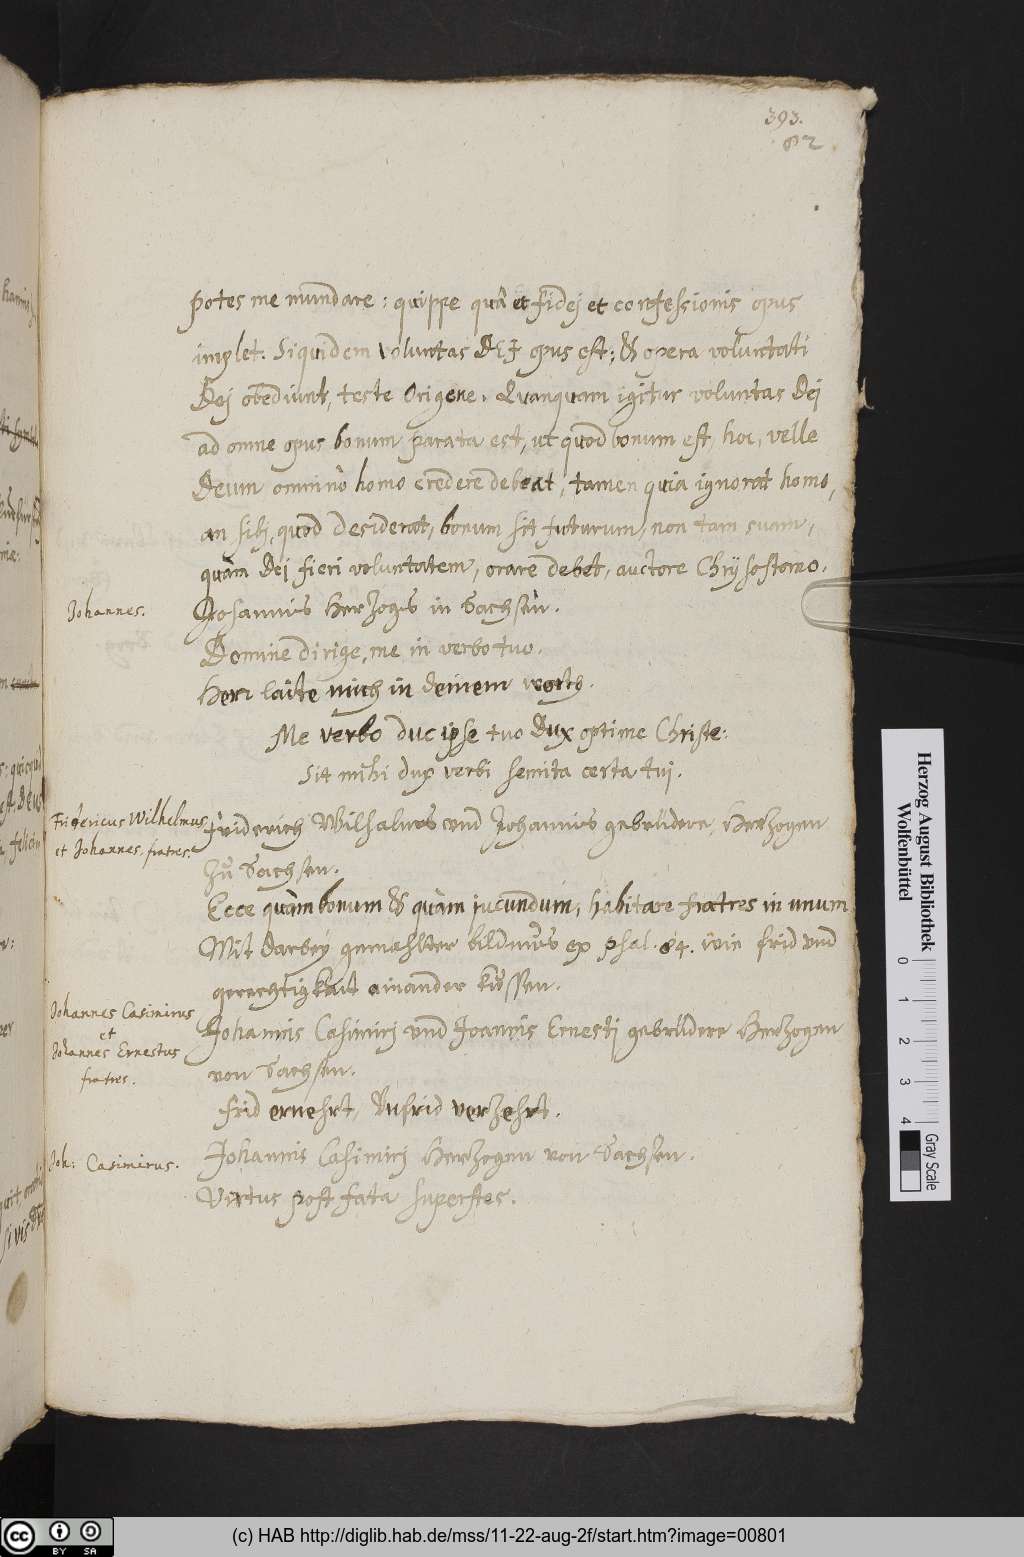 393.
82
potes me mundare: quippe quâ et fidej et confessionis opus
implet. Siquidem voluntas DEJ opus est; & opera voluntati
Dej obediunt, teste Origene. Quanquam igitur voluntas Dej
ad omne opus bonum parata est, ut quod bonum est, hoc, velle
Deum omninò homo credere debeat, tamen quia ignorat homo,
an sibj, quod desiderat, bonum sit futurum, non tam suam,
quàm Dej fieri voluntatem, orare debet, auctore Chrysostomo.
Johannes.
Johannis Herzogs in Sachsen.
Domine dirige, me in verbo tuo.
Herr laite mich in deinem worth.
Me verbo duc ipse tuo Dux optime Christe:
Sit mihi dux verbi semita certa tuj.
Fridericus Wilhelmus
et Johannes. fratres.
Friderich Wilhalms und Johannis gebrüdere, Herzogen
zu Sachsen.
Ecce quàm bonum & quàm jucundum, habitare fratres in unum
Mit darbey gemahlter bildnus ex psal. 84. wie frid und
gerechtigkait ainander küssen.
Johannes Casimirus
et
Johannes Ernestus
fratres.
Johannis Casimirj und Joannis Ernestj gebrüdere Herzogen
von Sachsen.
Frid ernehrt, Unfrid verzehrt.
Joh: Casimirus.
Johannis Casimirj Herzogen von Sachsen.
Virtus post fata superstes.
Herzog August Bibliothek
Wolfenbüttel
0 1 2 3 4
Gray Scale
cc BY SA
(c) HAB http://diglib.hab.de/mss/11-22-aug-2f/start.htm?image=00801